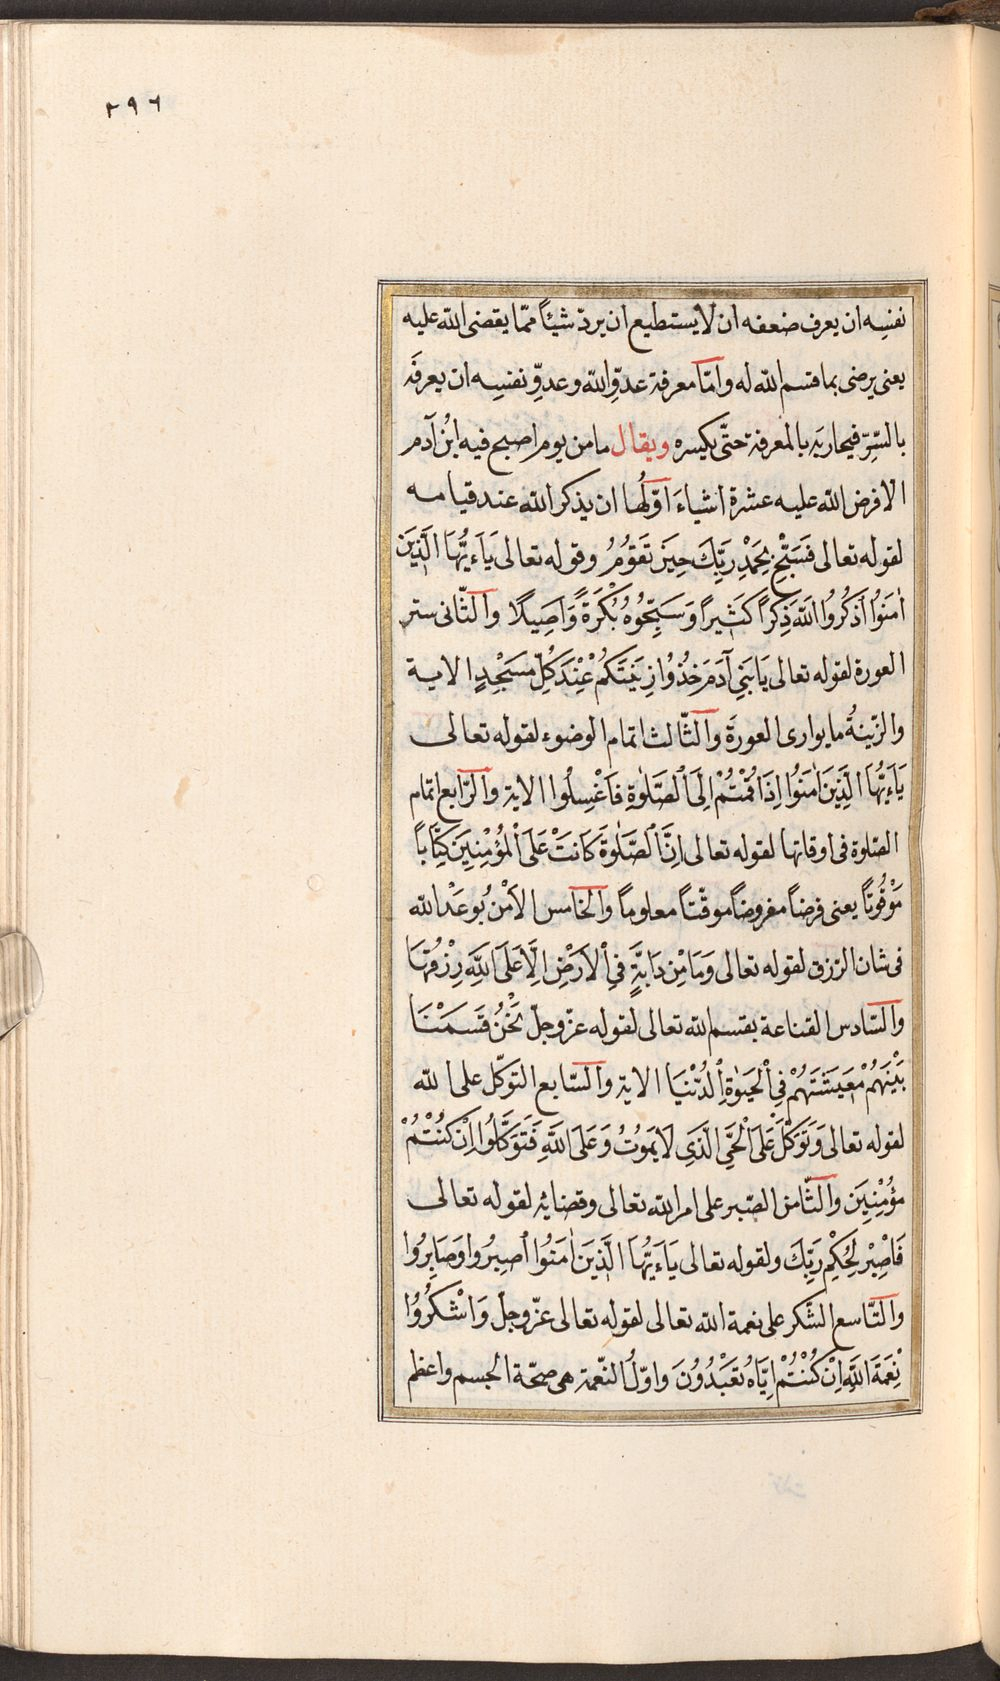 ٢٩٦
نفسِه ان يعرف ضعفه ان لا يستطيع ان يردّ شيئاً ممّا يقضى الله عليه
يعنى يرضى بما قسم الله له وامّا معرفة عدوِّ الله وعدوِّ نفسِه ان يعرفَه
بالسِّرّ فيحاربَه بالمعرفة حتّى يكسره ويقال ما من يوم اصبح فيه ابْن آدم
الا فرض الله عليه عشرة اشياءَ اوّلُها ان يذكر الله عند قيامه
لقوله تعالى فَسَبِّحْ بِحَمْدِ رَبِّكَ حِينَ تَقُومُ وقوله تعالى يَاءَيُّهَا الَّذِينَ
اٰمَنُوا اذْكُرُوا اللهَ ذِكْراً كَثِيراً وَسَبِّحُوهُ بُكْرَةً وَّاَصِيلًا والثّانى ستر
العورة لقوله تعالى يَا بَنِي آدَمَ خُذُوا زِينَتَكُمْ عِنْدَ كُلِّ مَسْجِدٍ الاية
والزّينةُ ما يوارى العورةَ والثّالث اتمام الوضوء لقوله تعالى
يَاءَيُّهَا الَّذِينَ اٰمَنُوا اِذَا قُمْتُمْ اِلَى الصَّلٰوةِ فَاغْسِلُوا الاية والرّابع اتمام
الصّلوة فى اوقاتها لقوله تعالى اِنَّ الصَّلٰوةَ كَانَتْ عَلَى الْمُؤْمِنِينَ كِتَاباً
مَوْقُوتاً يعنى فرضاً مفروضاً موقّتاً معلوماً والخامس الاَمْن بُوعْد الله
فى شان الرزق لقوله تعالى وَمَا مِنْ دَابَّةٍ فِي الْاَرْضِ اِلَّا عَلَى اللهِ رِزْقُهَا
والسّادس القناعة بقسم الله تعالى لقوله عزّ وجلّ نَحْنُ قَسَمْنَا
بَيْنَهُمْ مَعِيشَتَهُمْ فِي الْحَيٰوةِ الدُّنْيَا الاية والسّابع التوكّل على الله
لقوله تعالى وَتَوَكَّلْ عَلَى الْحَيِّ الَّذِي لَا يَمُوتُ وَعَلَى اللهِ فَتَوَكَّلُوا اِنْ كُنْتُمْ
مُؤْمِنِينَ والثّامن الصّبر على امر الله تعالى وقضائه لقوله تعالى
فَاصْبِرْ لِحُكْمِ رَبِّكَ ولقوله تعالى يَاءَيُّهَا الَّذِينَ اٰمَنُوا اصْبِرُوا وَصَابِرُوا
والتّاسع الشّكر على نعمة الله تعالى لقوله تعالى عزّ وجلّ وَاشْكُرُوا
نِعْمَةَ اللهِ اِنْ كُنْتُمْ اِيَّاهُ تَعْبُدُونَ واوّلُ النّعمة هى صحّة الجسم واعظم